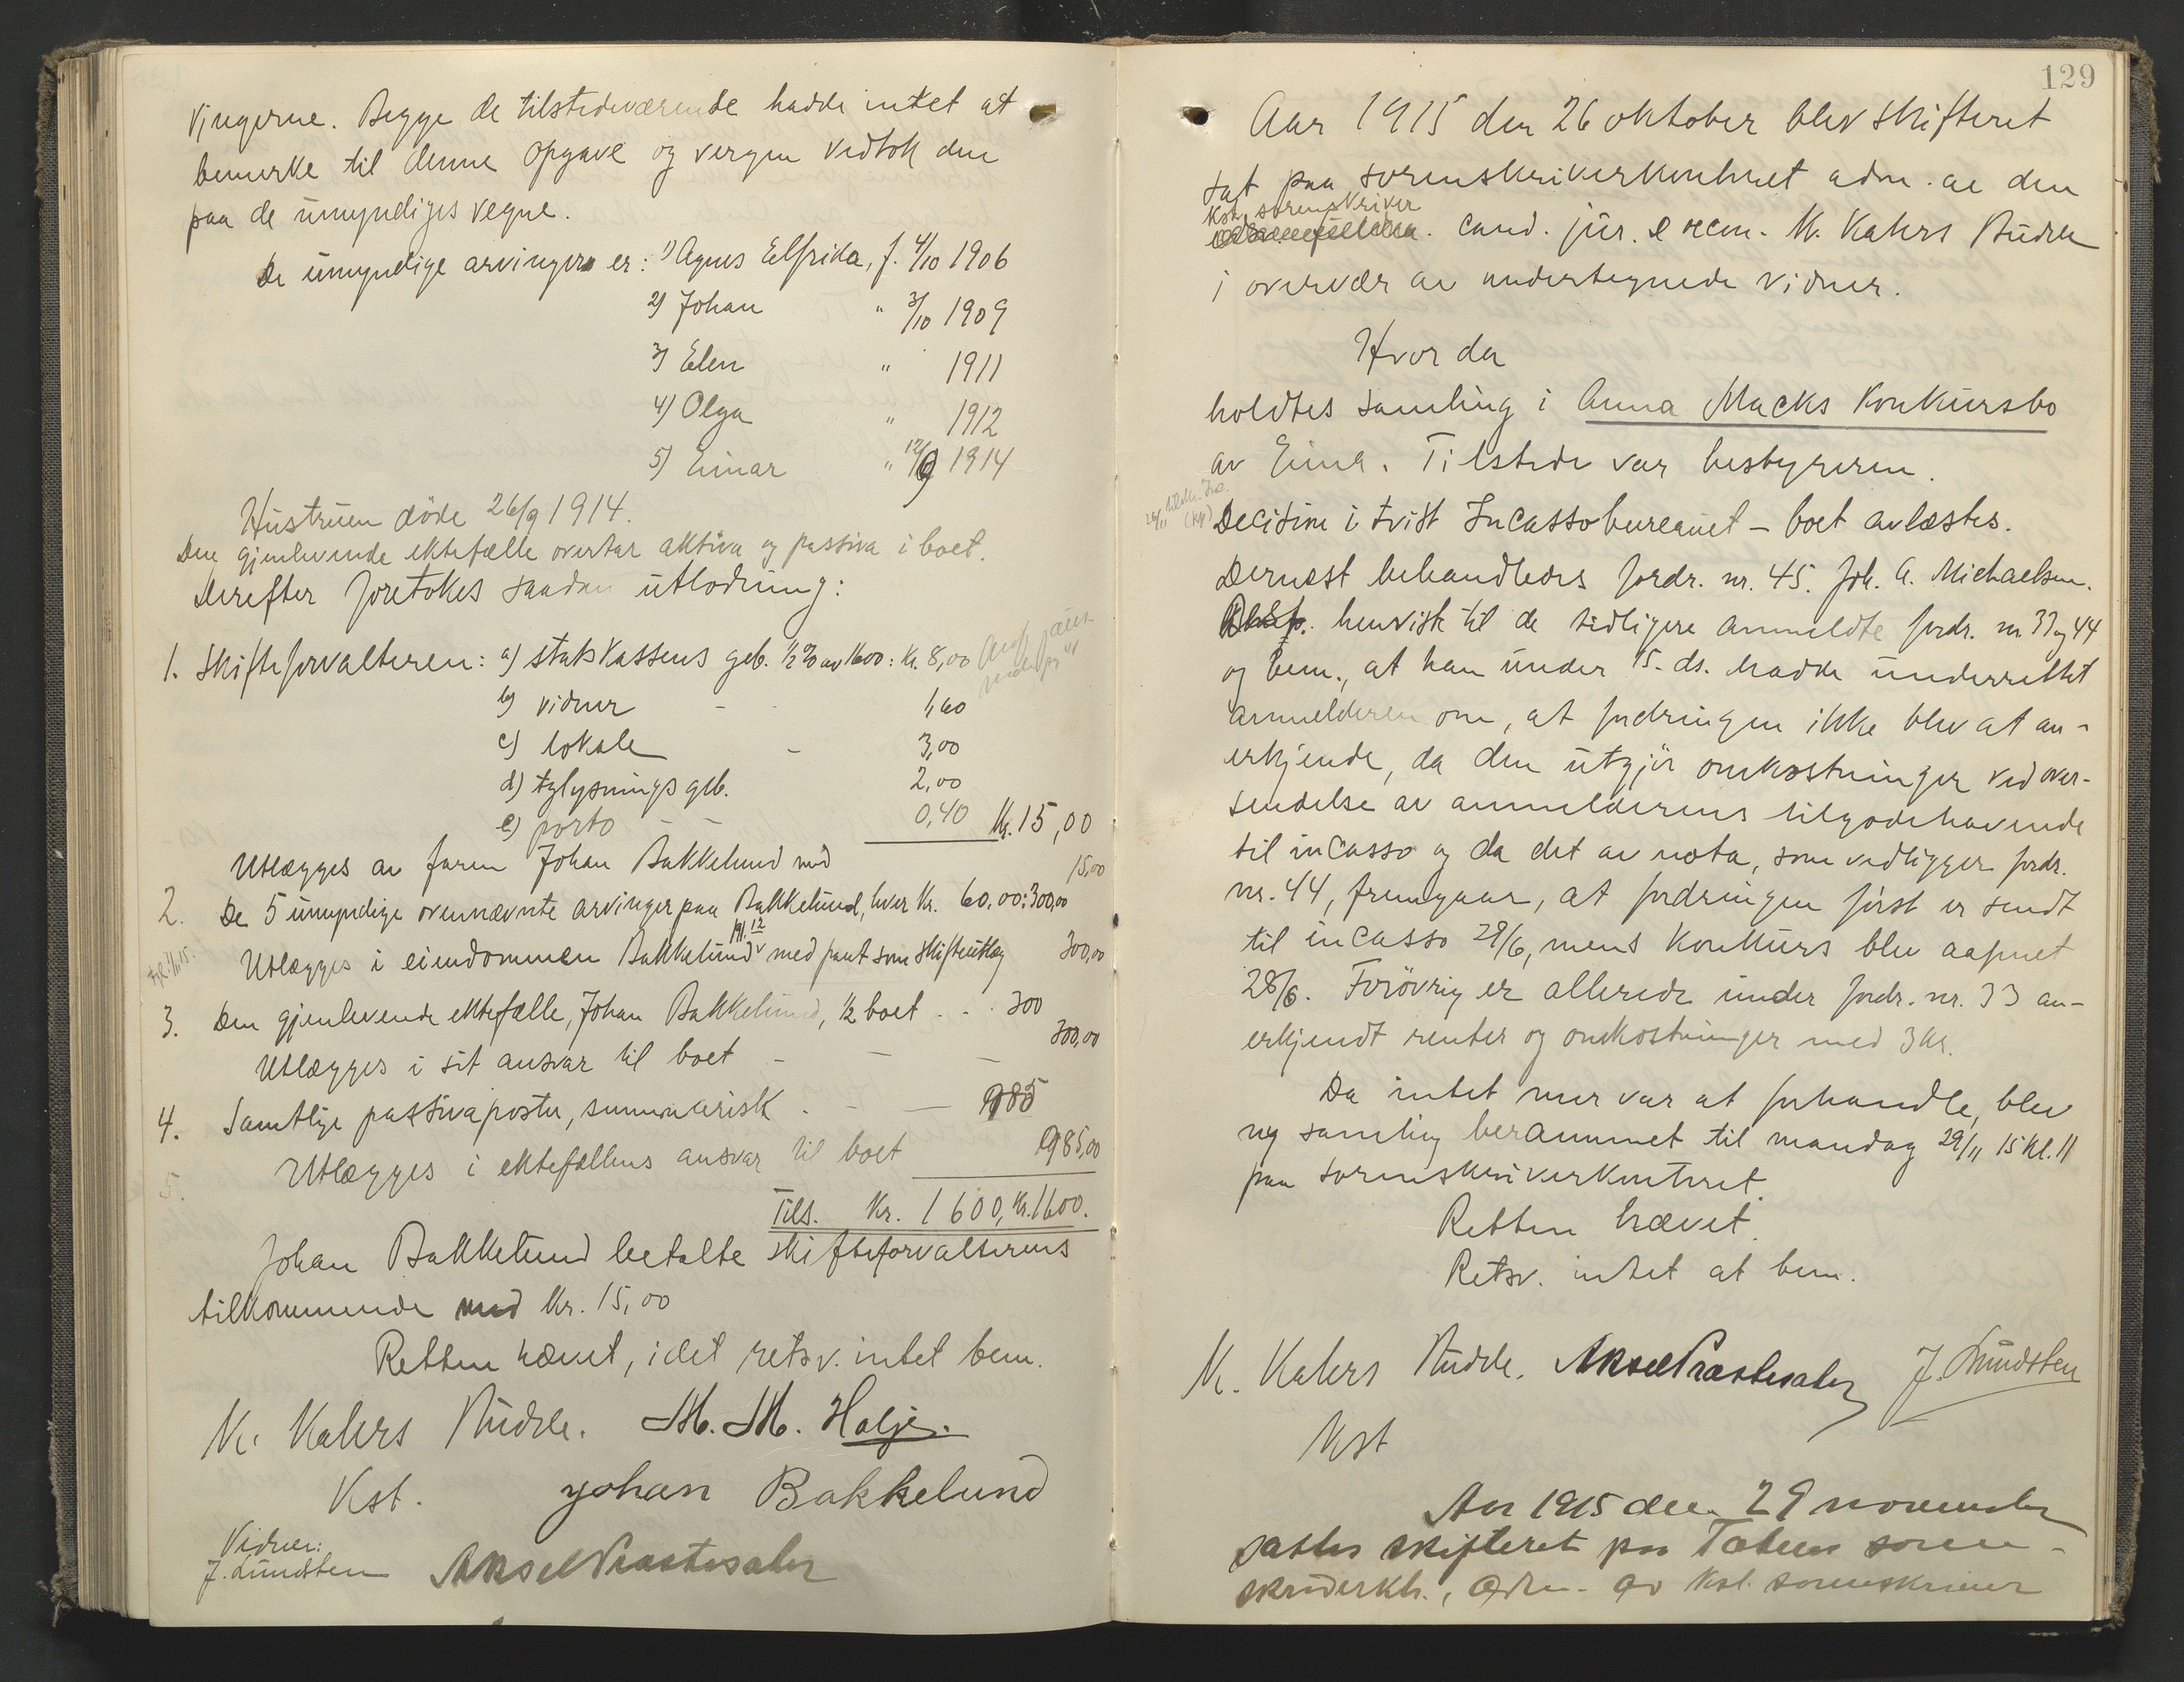 vingerne. Begge de tilstedeværende hadde intet at
bemerke til denne opgave og vergen vedtok den
paa de umyndiges vegne.
De umyndige arvinger er: 1) Agnes Elfrida, f. 4/10 1906
2) Johan " 3/10 1909
3) Elen " 1911
4) Olga " 1912
5) Einar " 12/9 1914
Hustruen døde 26/9 1914.
Den gjenlevende ektefælle overtar aktiva og passiva i boet.
Derefter foretokes saadan utlodning:
1. Skifteforvalteren: a) statskassens geb. 1/2 % av 1600: Kr. 8,00
b) vidner - - 1,60
c) lokale - 3,00
d) tglysnings geb. 2,00
e) porto - - 0,40 Kr. 15,00
Utlægges av faren Johan Bakkelund med 15,00
2. De 5 umyndige ovennævnte arvinger paa Bakkelund, hver Kr. 60,00: 300,00
Utlægges i eiendommen Bakkelund med pant som skifteutlæg 300,00
3. Den gjenlevende ektefælle, Johan Bakkelund, 1/2 boet . . . 300
Utlægges i sit ansvar til boet - - - 300,00
4. Samtlige passivaposter, summarisk . - — 985
Utlægges i ektefællens ansvar til boet 985,00
5.
Tils. Kr. 1600, Kr. 1600.
Johan Bakkelund betalte skifteforvalterens
tilkommende med Kr. 15,00
Retten hævet, idet retsv. intet bem.
K. Kahrs Budde. M. M. Halje.
Kst. Johan Bakkelund
Vidner:
J. Lundsten Aksel Præstesater
129
Aar 1915 den 26 oktober blev skifteret
sat paa sorenskriverkontoret adm. av den
kst. sorenskriver
cand. jur. e oecon. K. Kahrs Budde
i overvær av undertegnede vidner.
Hvor da
holdtes samling i Anna Macks Konkursbo
av Eina. Tilstede var bestyreren.
Decision i tvist Incassobureauet - boet avlæstes.
Dernæst behandledes fordr. nr. 45. Joh. A. Michaelsen.
henviste til de tidligere anmeldte fordr. nr. 33 og 44
og bem., at han under 15. ds. hadde underrettet
anmelderen om, at fordringen ikke blev at an-
erkjende, da den utgjør omkostninger ved over-
sendelse av anmelderens tilgodehavende
til incasso og da det av nota, som vedligger fordr.
nr. 44, fremgaar, at fordringen først er sendt
til incasso 29/6, mens Konkurs blev aapnet
28/6. Forøvrig er allerede under fordr. nr. 33 an-
erkjendt renter og omkostninger med 3 kr.
Da intet mer var at forhandle, blev
ny samling berammet til mandag 29/11 15 kl. 11
paa sorenskriverkontoret.
Retten hævet.
Retsv. intet at bem.
K. Kahrs Budde. Aksel Præstesater J. Lundsten
Kst
Aar 1915 den 29 november
sattes skifteret paa Totens soren-
skriverkt., adm. av kst. sorenskriver